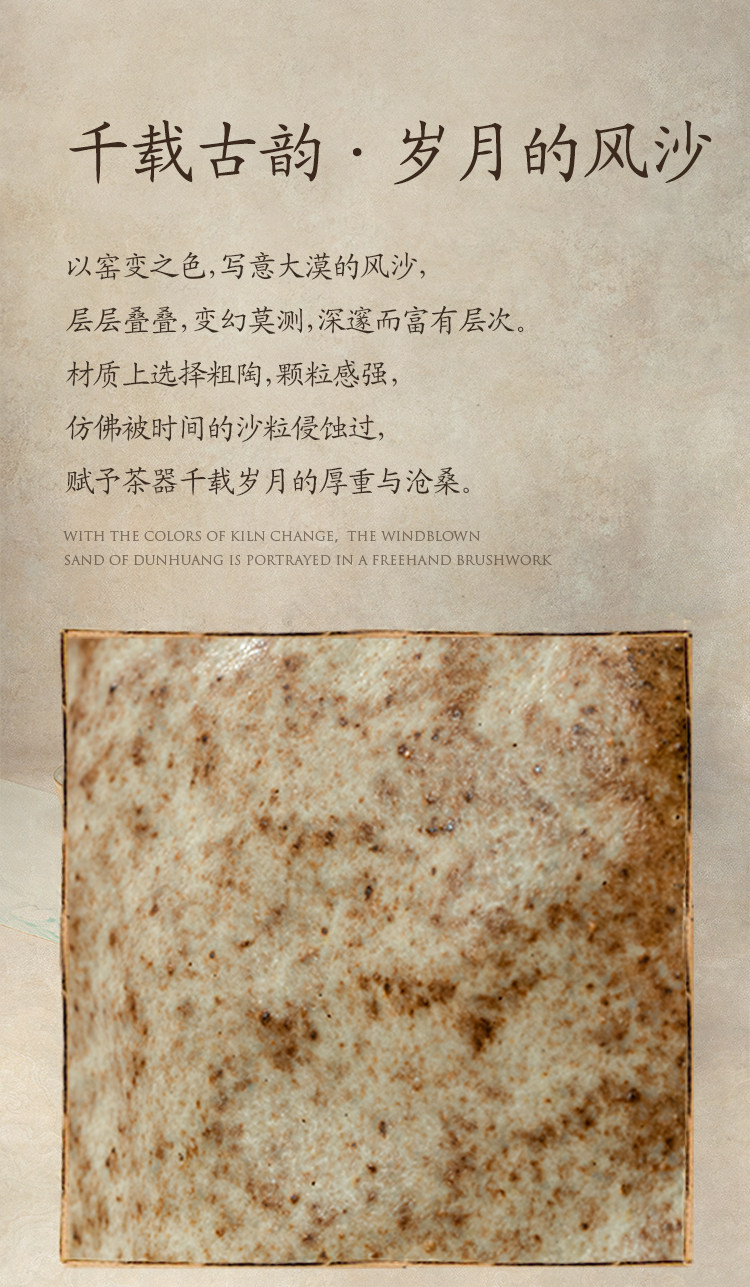 千载古韵·岁月的风沙
以窑变之色,写意大漠的风沙,
层层叠叠,变幻莫测,深邃而富有层次。
材质上选择粗陶,颗粒感强,
仿佛被时间的沙粒侵蚀过,
赋予茶器千载岁月的厚重与沧桑。
WITH THE COLORS OF KILN CHANGE, THE WINDBLOWN
SAND OF DUNHUANG IS PORTRAYED IN A FREEHAND BRUSHWORK